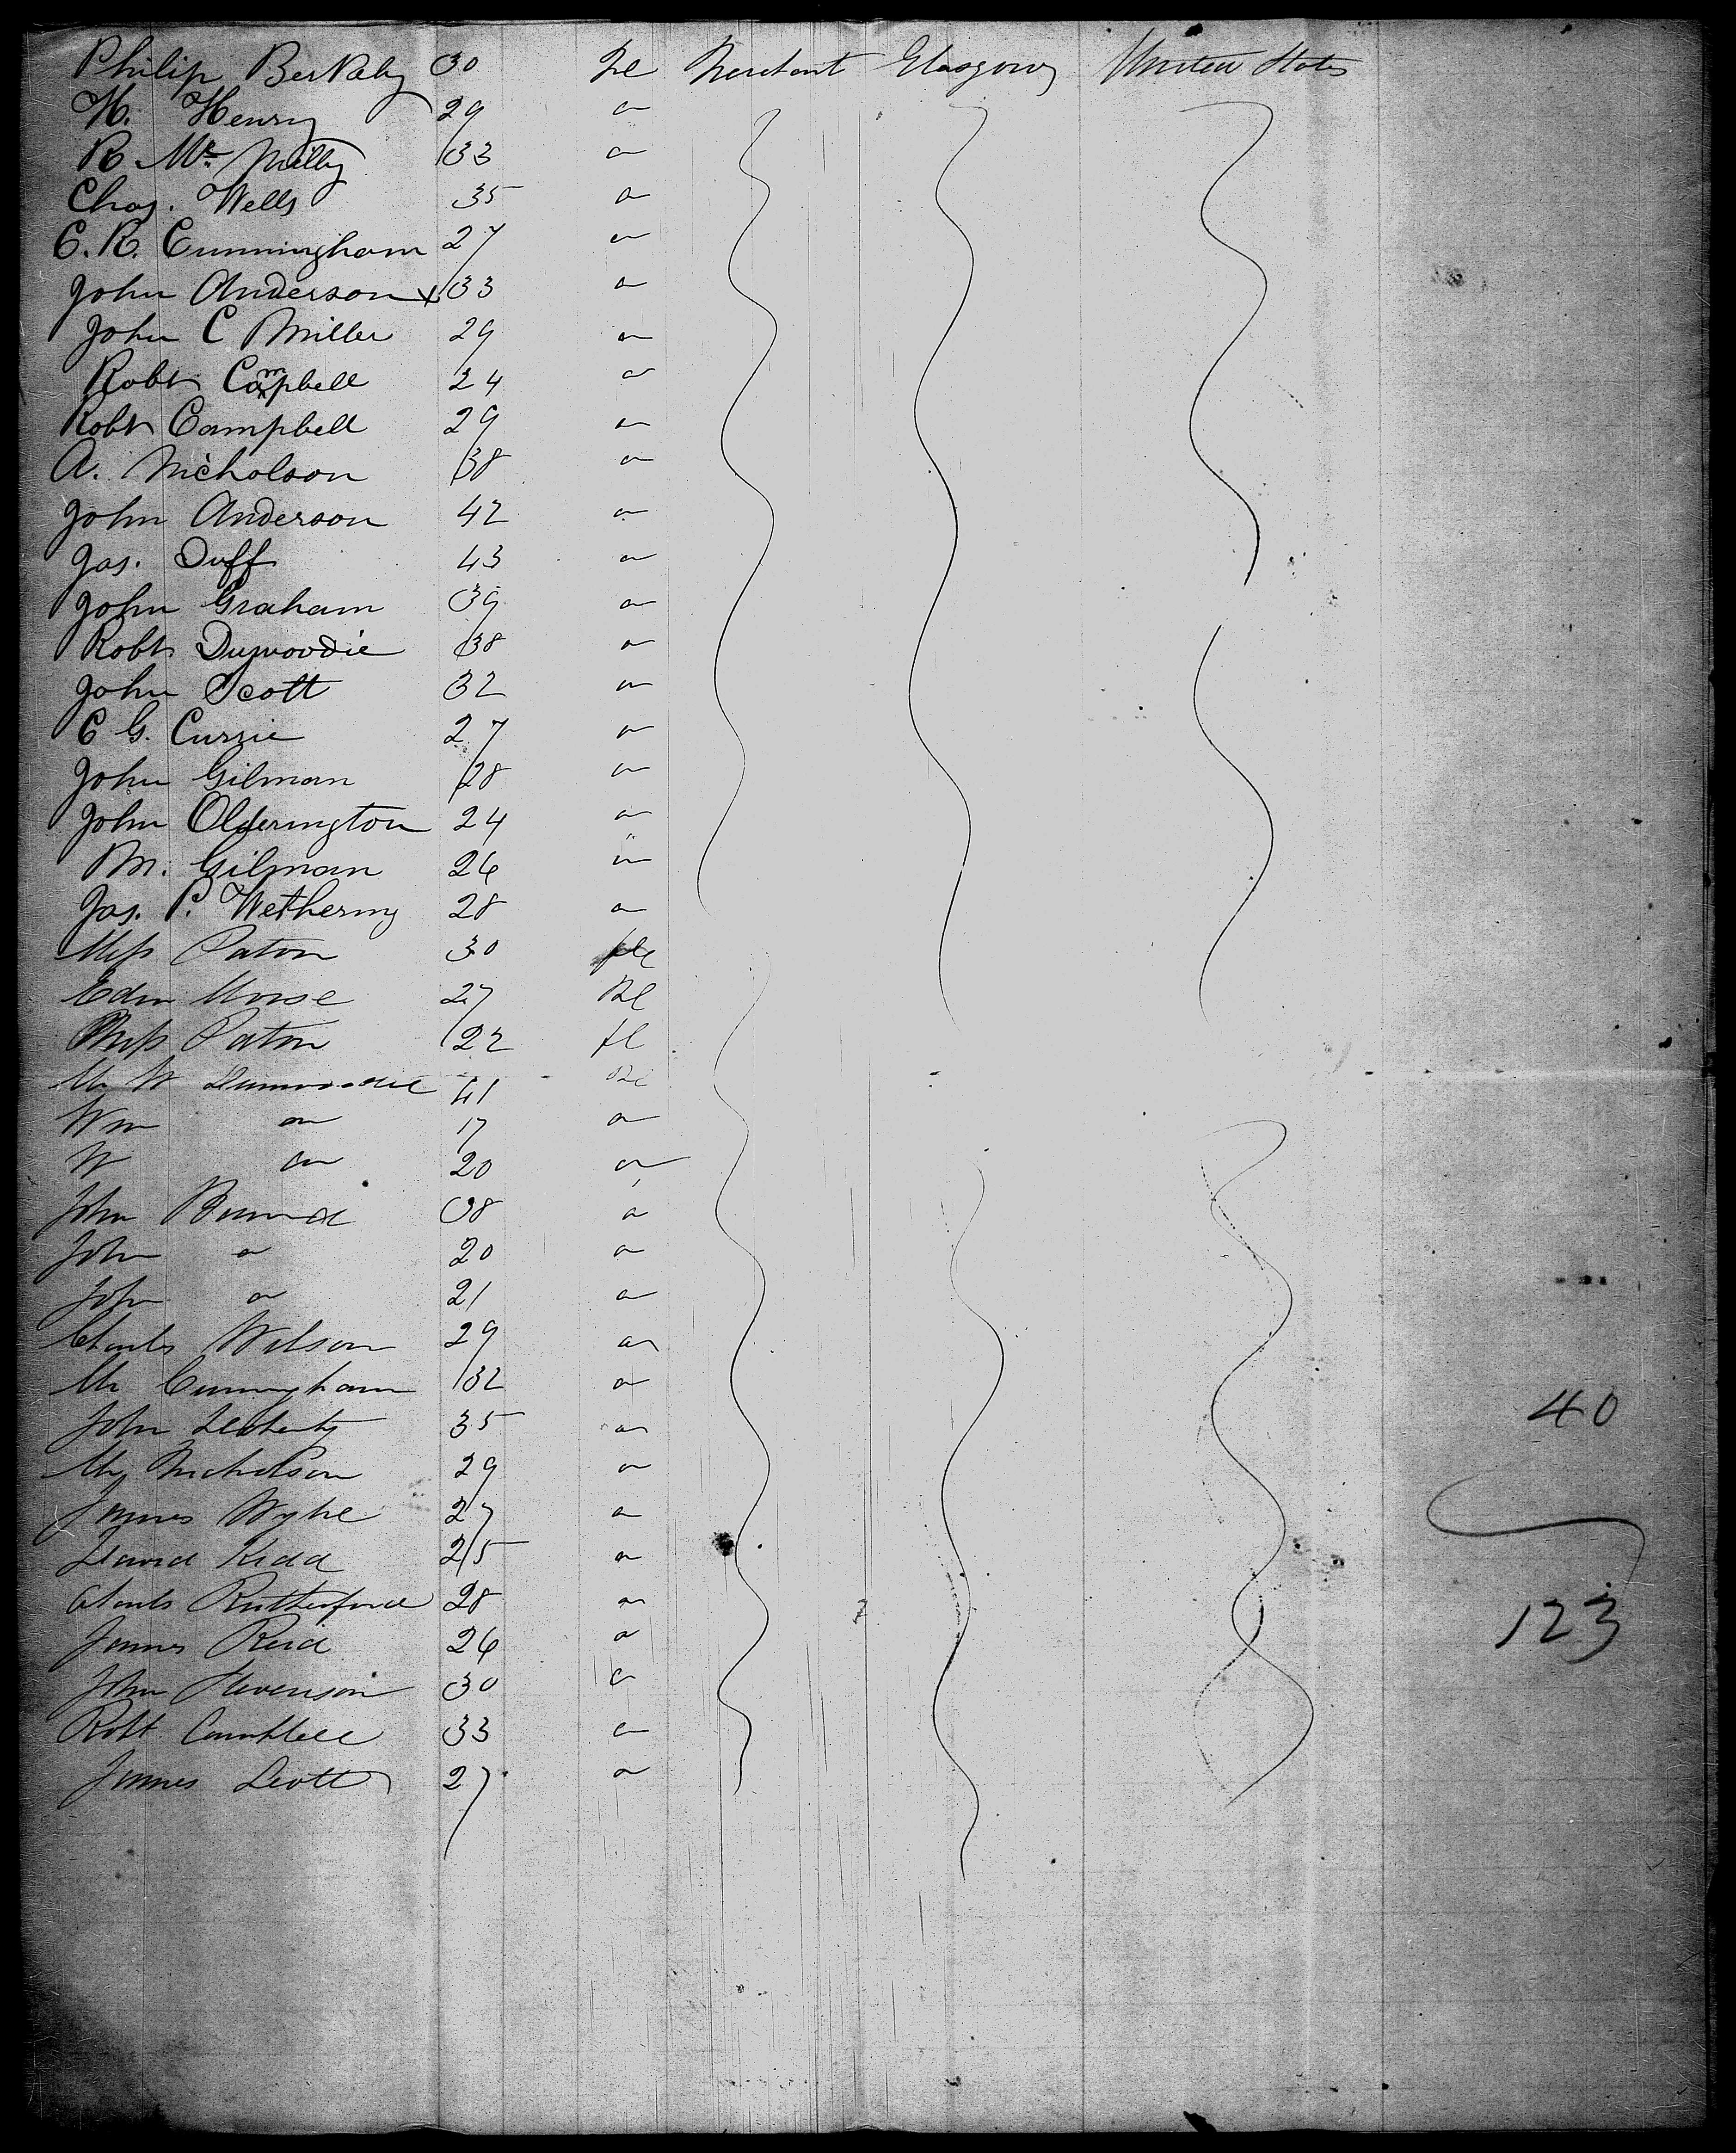 Philip Berkely 30 Ml Merchant Glasgow United States
H. Henry 29 "
R. Mc Nelly 33 "
Chas. Wells 35 "
C. R. Cunningham 27 "
John Anderson x 33 "
John C Miller 29 "
Robt Campbell 24 "
Robt Campbell 29 "
A. Nicholson 38 "
John Anderson 42 "
Jas. Duff 43 "
John Graham 39 "
Robt Dunwoodie 38 "
John Scott 32 "
C G. Currie 27 "
John Gilman 28 "
John Olderington 24 "
M. Gilman 26 "
Jas. P. Wethering 28 "
Miss Paton 30 fl
Edw Morse 27 Ml
Miss Paton 22 fl
Mr W Dunwoodie 41 Ml
Wm " 17 "
W " 20 "
John 38 "
John " 20 "
John " 21 "
Charles Wilson 29 "
Mr Cunningham 32 "
John Docherty 35 "
40
Mr Nicholson 29 "
James Wylie 27 "
David Kidd 25 "
Charles Rutherford 28 "
123
James Reid 26 "
John Stevenson 30 "
Robt Campbell 33 "
James Scott 27 "